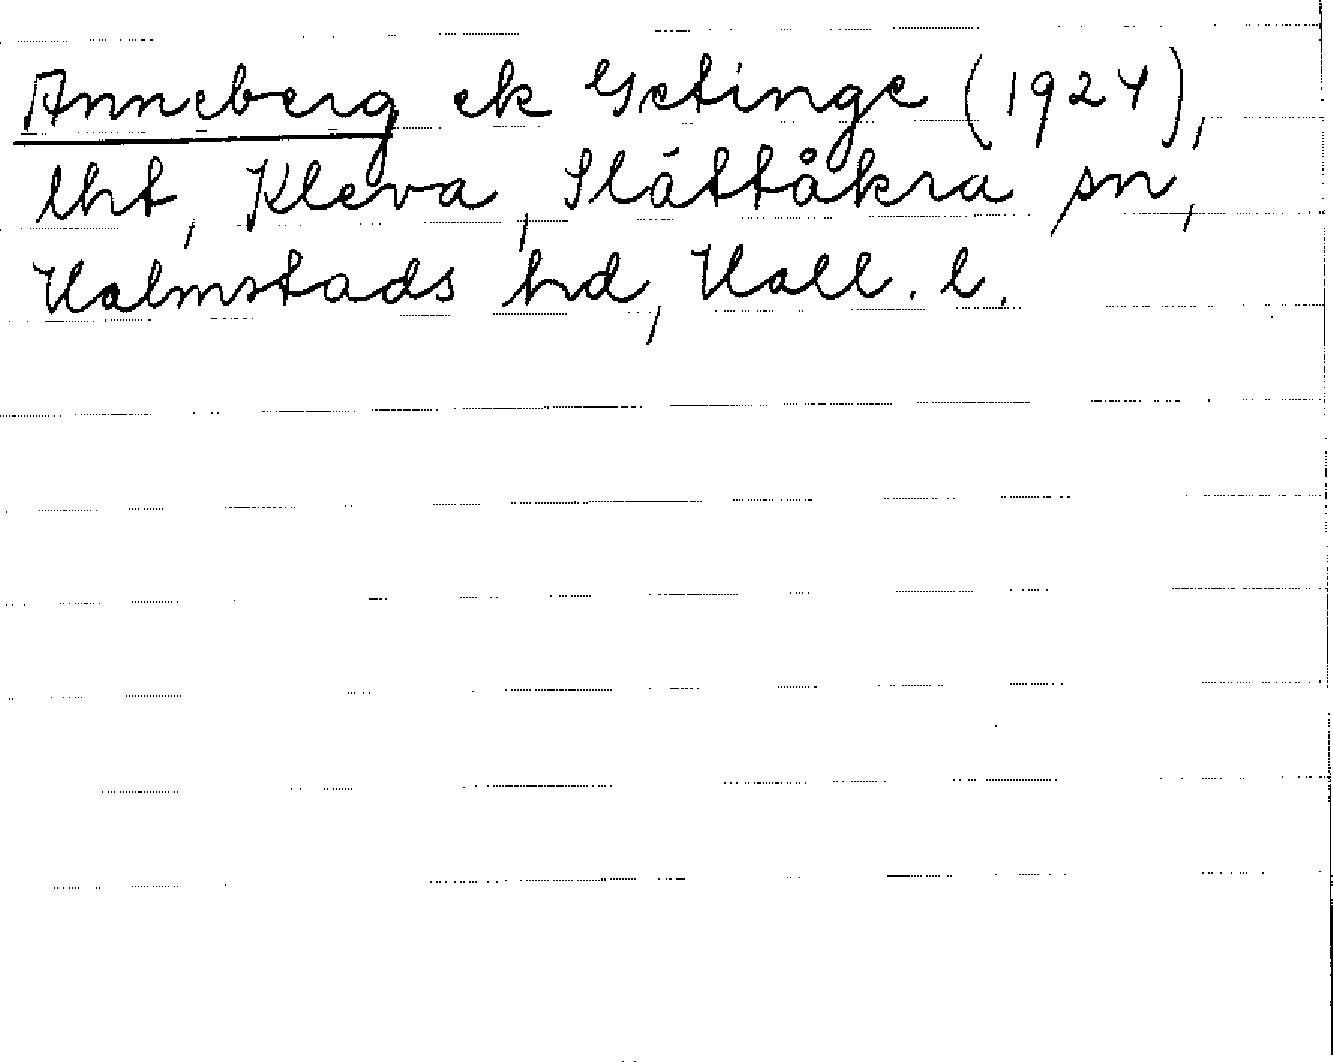 Anneberg ek Getinge (1924),
lht, Kleva, Slättåkra sn,
Halmstads hd, Hall. l.